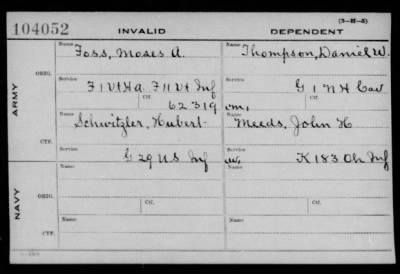 (3-H-5)
104052 INVALID DEPENDENT
Name Foss, Moses A. Name Thompson, Daniel W.
ARMY ORIG. Service F 1 Vt Ha. F 11 Vt Inf Service G 1 N H Cav
Ctf. 62319 Ctf.
CTF. Name Schwitzler, Hubert Name Meeds, John H
Service G 29 U S Inf Service K 183 Oh Inf
NAVY ORIG. Name Name
Ctf. Ctf.
CTF. Name Name